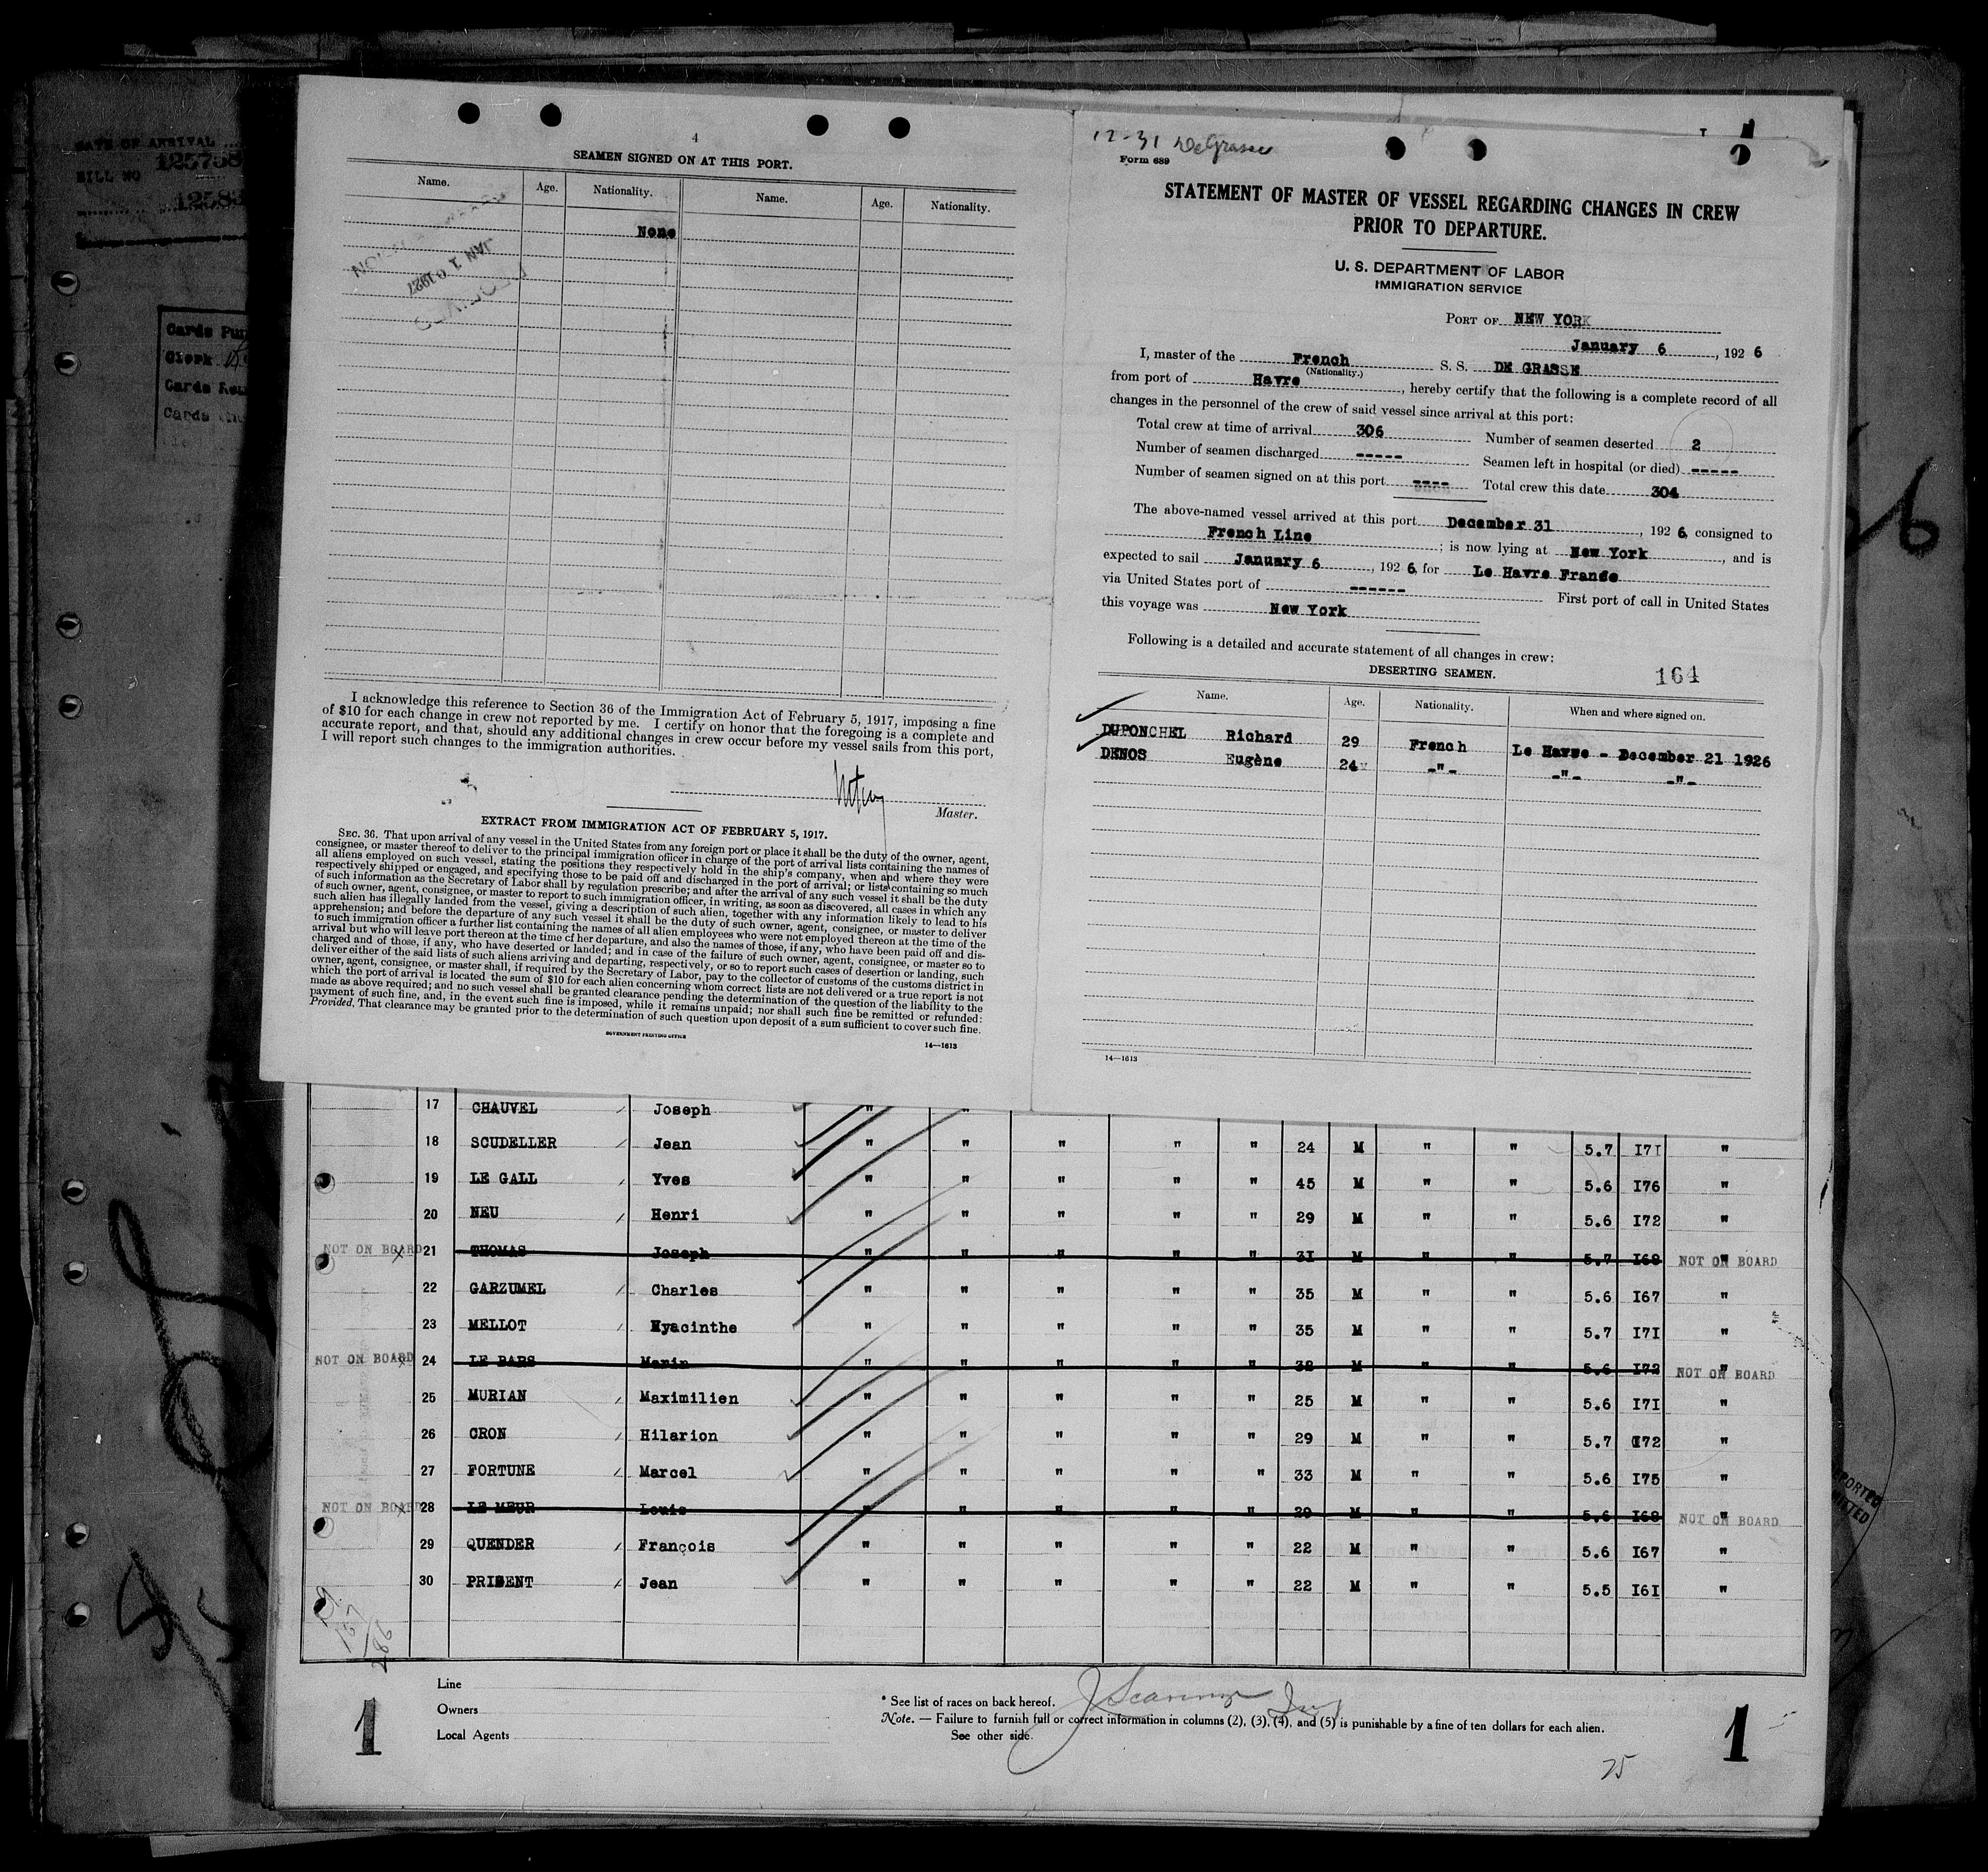 DATE OF ARRIVAL
BILL NO 125758
Clerk
4
SEAMEN SIGNED ON AT THIS PORT.
Name. Age. Nationality. Name. Age. Nationality.
None
JAN 10 1927
I acknowledge this reference to Section 36 of the Immigration Act of February 5, 1917, imposing a fine
of $10 for each change in crew not reported by me. I certify on honor that the foregoing is a complete and
accurate report, and that, should any additional changes in crew occur before my vessel sails from this port,
I will report such changes to the immigration authorities.
Master.
EXTRACT FROM IMMIGRATION ACT OF FEBRUARY 5, 1917.
SEC. 36. That upon arrival of any vessel in the United States from any foreign port or place it shall be the duty of the owner, agent,
consignee, or master thereof to deliver to the principal immigration officer in charge of the port of arrival lists containing the names of
all aliens employed on such vessel, stating the positions they respectively hold in the ship's company, when and where they were
respectively shipped or engaged, and specifying those to be paid off and discharged in the port of arrival; or lists containing so much
of such information as the Secretary of Labor shall by regulation prescribe; and after the arrival of any such vessel it shall be the duty
of such owner, agent, consignee, or master to report to such immigration officer, in writing, as soon as discovered, all cases in which any
such alien has illegally landed from the vessel, giving a description of such alien, together with any information likely to lead to his
apprehension; and before the departure of any such vessel it shall be the duty of such owner, agent, consignee, or master to deliver
to such immigration officer a further list containing the names of all alien employees who were not employed thereon at the time of the
arrival but who will leave port thereon at the time of her departure, and also the names of those, if any, who have been paid off and dis-
charged and of those, if any, who have deserted or landed; and in case of the failure of such owner, agent, consignee, or master so to
deliver either of the said lists of such aliens arriving and departing, respectively, or so to report such cases of desertion or landing, such
owner, agent, consignee, or master shall, if required by the Secretary of Labor, pay to the collector of customs of the customs district in
which the port of arrival is located the sum of $10 for each alien concerning whom correct lists are not delivered or a true report is not
made as above required; and no such vessel shall be granted clearance pending the determination of the question of the liability to the
payment of such fine, and, in the event such fine is imposed, while it remains unpaid; nor shall such fine be remitted or refunded:
Provided, That clearance may be granted prior to the determination of such question upon deposit of a sum sufficient to cover such fine.
GOVERNMENT PRINTING OFFICE
14—1613
12-31 DeGrasse
Form 689
STATEMENT OF MASTER OF VESSEL REGARDING CHANGES IN CREW
PRIOR TO DEPARTURE.
U. S. DEPARTMENT OF LABOR
IMMIGRATION SERVICE
PORT OF NEW YORK
January 6, 192 6
I, master of the French S. S. DE GRASSE
(Nationality.)
from port of Havre, hereby certify that the following is a complete record of all
changes in the personnel of the crew of said vessel since arrival at this port:
Total crew at time of arrival 306 Number of seamen deserted 2
Number of seamen discharged ----- Seamen left in hospital (or died) -----
Number of seamen signed on at this port ---- Total crew this date 304
The above-named vessel arrived at this port December 31, 192 6, consigned to
French Line; is now lying at New York, and is
expected to sail January 6, 192 6, for Le Havre France
via United States port of ------ First port of call in United States
this voyage was New York
Following is a detailed and accurate statement of all changes in crew:
DESERTING SEAMEN. 164
Name. Age. Nationality. When and where signed on.
DUPONCHEL Richard 29 French Le Havre - December 21 1926
DENOS Eugène 24 -"- -"- -"-
14—1613
17 CHAUVEL Joseph " "
18 SCUDELLER Jean " " " " " 24 M " " 5.7 I7I "
19 LE GALL Yves " " " " " 45 M " " 5.6 I76 "
20 NEU Henri " " " " " 29 M " " 5.6 I72 "
NOT ON BOARD 21 THOMAS Joseph " " " " " 3I M " " 5.7 I68 NOT ON BOARD
22 GARZUMEL Charles " " " " " 35 M " " 5.6 I67 "
23 MELLOT Hyacinthe " " " " " 35 M " " 5.7 I7I "
NOT ON BOARD 24 LE BARS Marin " " " " " 32 M " " 5.6 I72 NOT ON BOARD
25 MURIAN Maximilien " " " " " 25 M " " 5.6 I7I "
26 CRON Hilarion " " " " " 29 M " " 5.7 I72 "
27 FORTUNE Marcel " " " " " 33 M " " 5.6 I75 "
NOT ON BOARD 28 LE MEUR Louis " " " " " 29 M " " 5.6 I68 NOT ON BOARD
29 QUENDER François " " " " " 22 M " " 5.6 I67 "
30 PRIGENT Jean " " " " " 22 M " " 5.5 I6I "
Line
Owners
Local Agents
* See list of races on back hereof.
Note. — Failure to furnish full or correct information in columns (2), (3), (4), and (5) is punishable by a fine of ten dollars for each alien.
See other side.
1
1
25